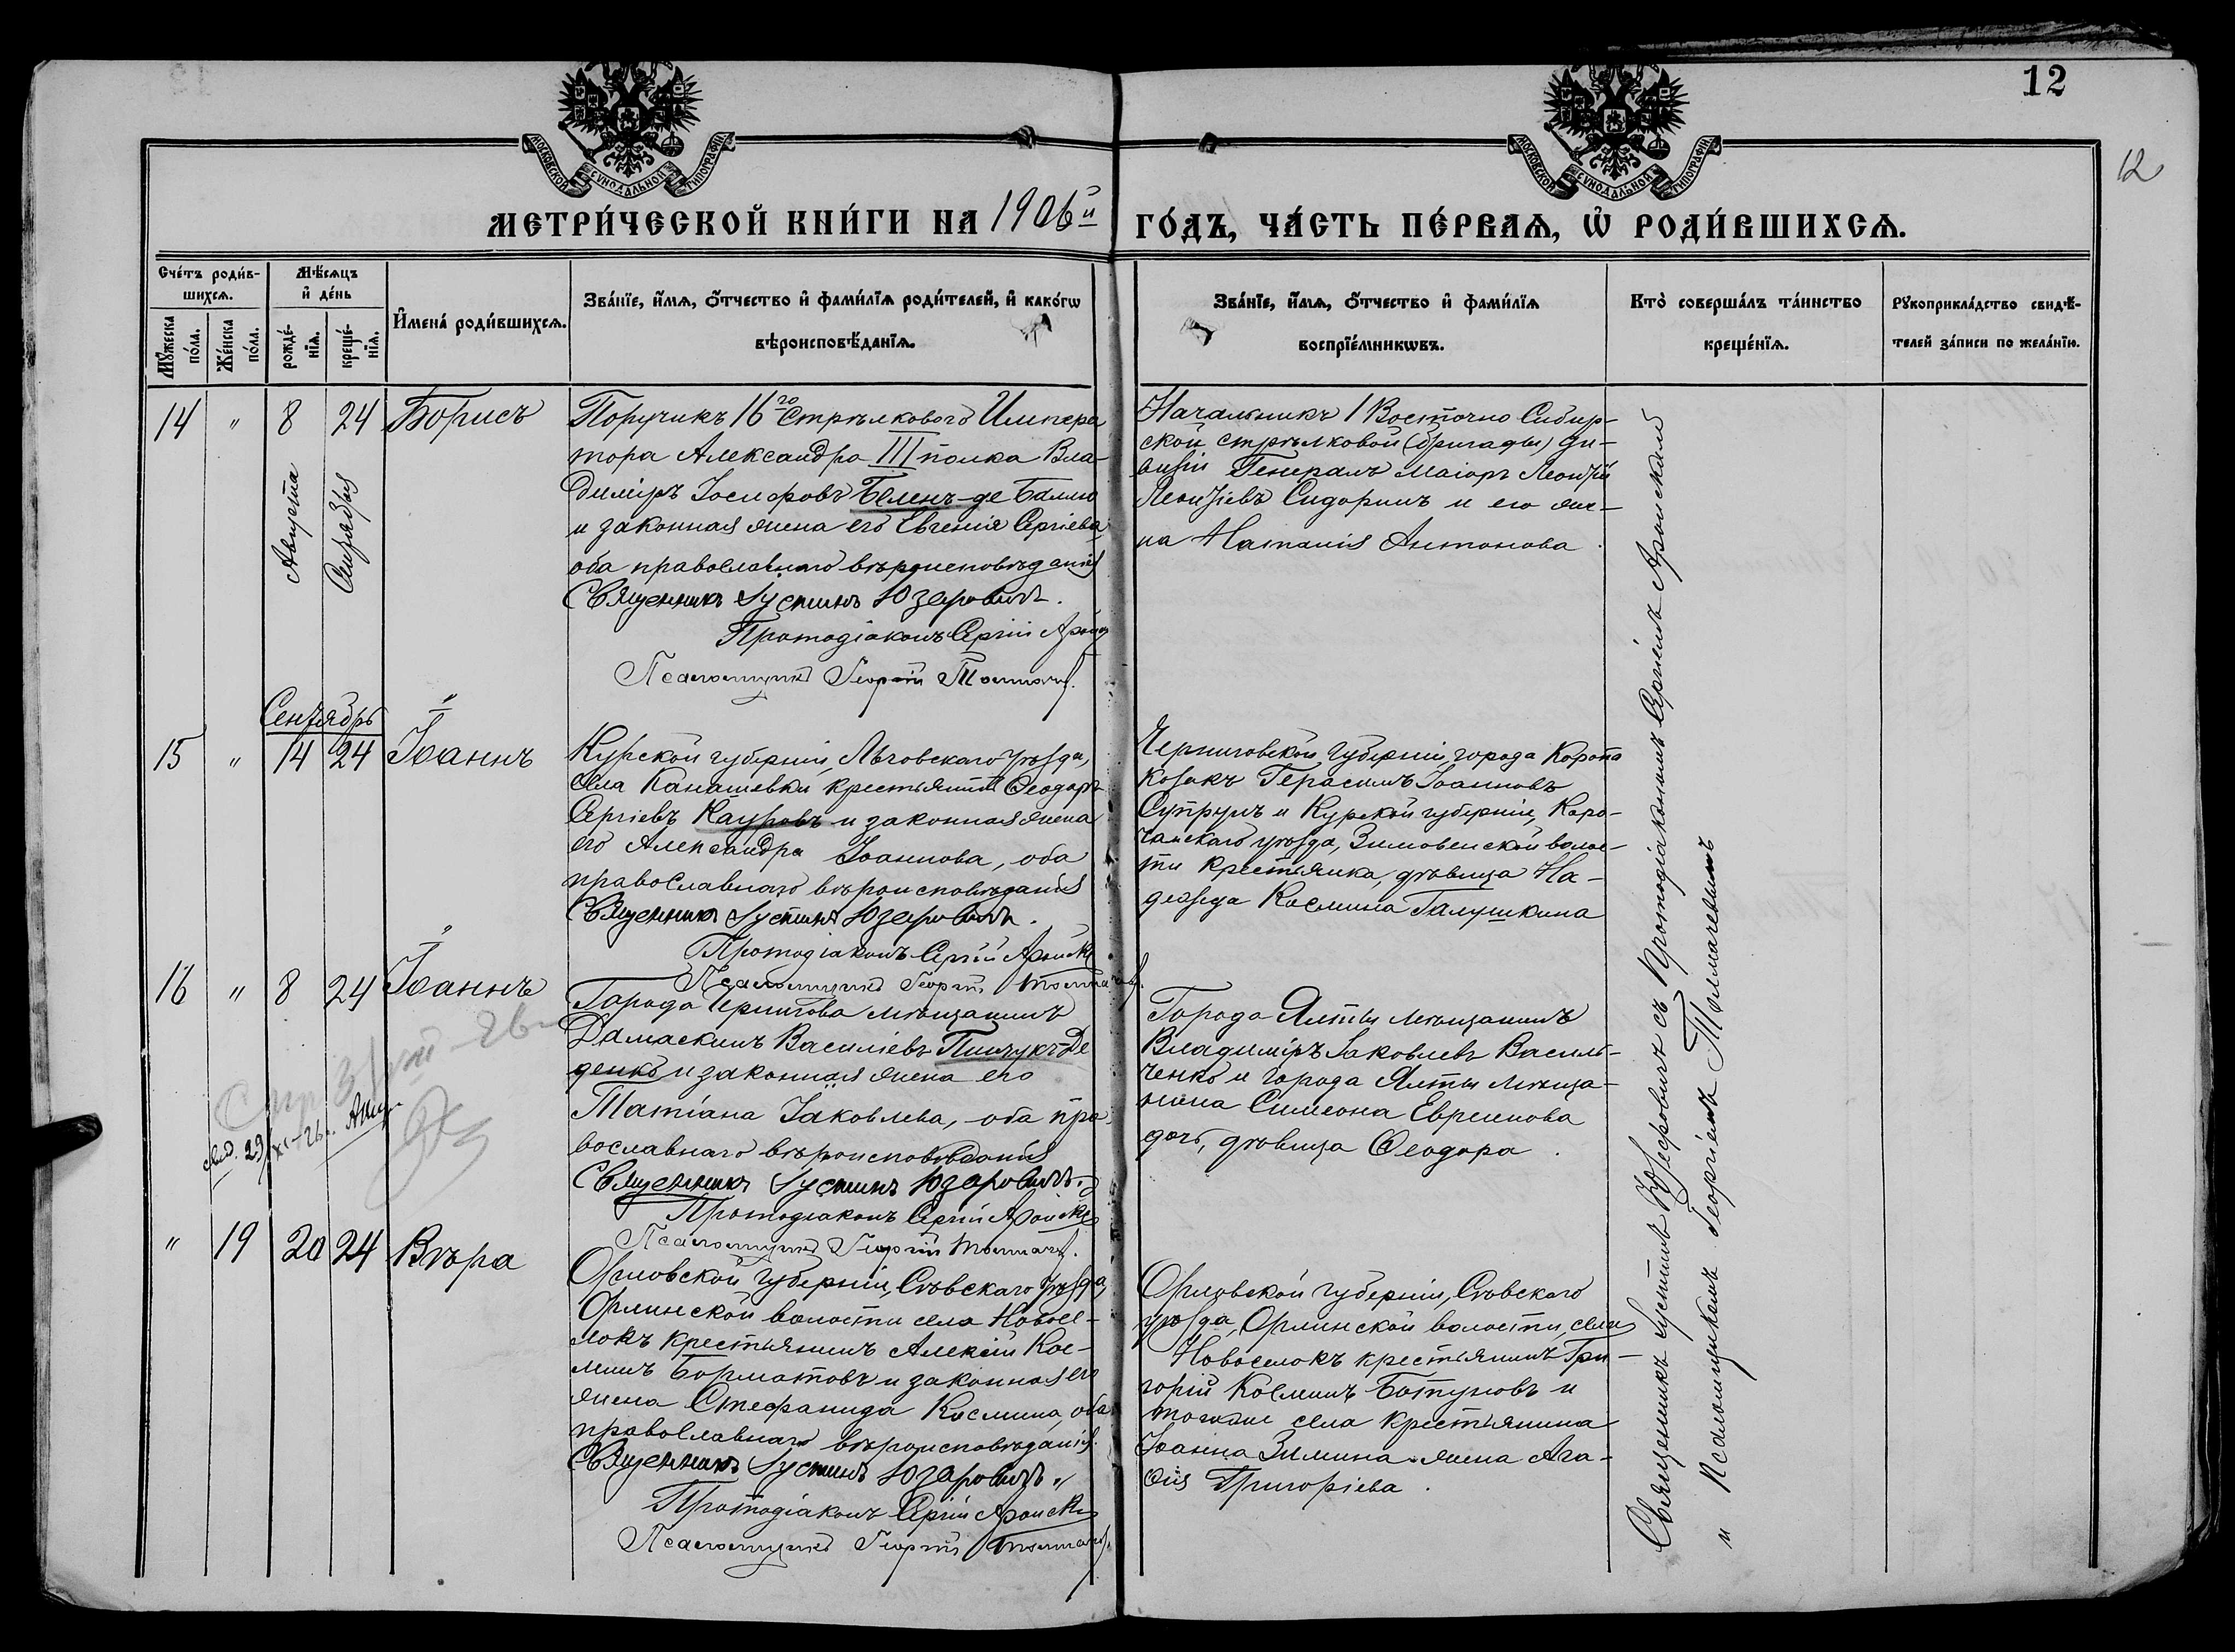 12
12
МОСКОВСКОЙ СѴНОДАЛЬНОЙ ТИПОГРАФІИ
МОСКОВСКОЙ СѴНОДАЛЬНОЙ ТИПОГРАФІИ
МЕТРИ́ЧЕСКОЙ КНИ́ГИ НА 1906й ГО́ДЪ, ЧА́СТЬ ПЕ́РВАѦ, Ѡ҆ РОДИ́ВШИХСѦ.
Сче́тъ роди́в-
шихсѧ.
Мꙋ́жеска по́ла.
Же́нска по́ла.
Мѣ́сѧцъ
и҆ де́нь
рожде́-
нїѧ.
креще́-
нїѧ.
И҆мена̀ роди́вшихсѧ.
Зва́нїе, и҆́мѧ, ѻ҆́тчество и҆ фами́лїѧ роди́телей, и҆ како́гѡ
вѣроисповѣ́данїѧ.
Зва́нїе, и҆́мѧ, ѻ҆́тчество и҆ фами́лїѧ
воспрїе́мникѡвъ.
Кто̀ соверша́лъ та́инство
креще́нїѧ.
Рꙋкоприкла́дство свидѣ́-
телей за́писи по жела́нїю.
14 " 8 24 Борисъ
Августа
Сентября
Поручикъ 16го Стрѣлковаго Импера
тора Александра III полка Вла-
димiръ Iосифовъ Беленъ-де Балю
и законная жена его Евгенiя Сергiева
оба православнаго вѣроисповѣданiя
Священникъ Iустинъ Юзефовичъ.
Протодiаконъ Сергiй Аро
Псаломщикъ Георгiй Толмач
Начальникъ 1 Восточно Сибир-
ской стрѣлковой (бригады) ди-
визiи Генералъ Маiоръ Леонтiй
Леонтiевъ Сидоринъ и его же-
на Наталiя Антонова
Сентябрь
15 " 14 24 Iоаннъ
Курской губернiи, Льговскаго уѣзда,
села Канашевки крестьянинъ Ѳеодоръ
Сергiевъ Кауровъ и законная жена
его Александра Iоаннова, оба
православнаго вѣроисповѣданiя
Священникъ Iустинъ Юзефовичъ.
Протодiаконъ Сергiй Аройск
Псаломщикъ Георгiй Толмач
Черниговской губернiи, города Коропа
козакъ Герасимъ Iоанновъ
Супрунъ и Курской губернiи, Коро-
чанскаго уѣзда, Зимовенской волос-
ти крестьянка, дѣвица На-
дежда Космина Галушкина
16 " 8 24 Iоаннъ
Города Чернигова мѣщанинъ
Дамаскинъ Василiевъ Пинчукъ-Де
денко и законная жена его
Татiана Iаковлева, оба пра-
вославнаго вѣроисповѣданiя
Священникъ Iустинъ Юзефовичъ.
Протодiаконъ Сергiй Аройск
Псаломщикъ Георгiй Толмач
Города Ялты мѣщанинъ
Владимiръ Iаковлевъ Василь-
ченко и города Ялты мѣща-
нина Симеона Евреинова
дочь, дѣвица Ѳеодора
" 19 20 24 Вѣра
Орловской губернiи, Сѣвскаго уѣзда,
Орлинской волости села Новосе-
локъ крестьянинъ Алексiй Кос-
минъ Борматовъ и законная его
жена Стефанида Космина, оба
православнаго вѣроисповѣданiя.
Священникъ Iустинъ Юзефовичъ
Протодiаконъ Сергiй Аройск
Псаломщикъ Георгiй Толмач
Орловской губернiи, Сѣвскаго
уѣзда, Орлинской волости, села
Новоселокъ крестьянинъ Гри-
горiй Косминъ Батуровъ и
тогоже села крестьянина
Iоанна Зимина жена Ага-
ѳiя Григорiева
Священникъ Iустинъ Юзефовичъ съ Протодiакономъ Сергiемъ Аройскимъ
и Псаломщикомъ Георгiемъ Толмачевымъ